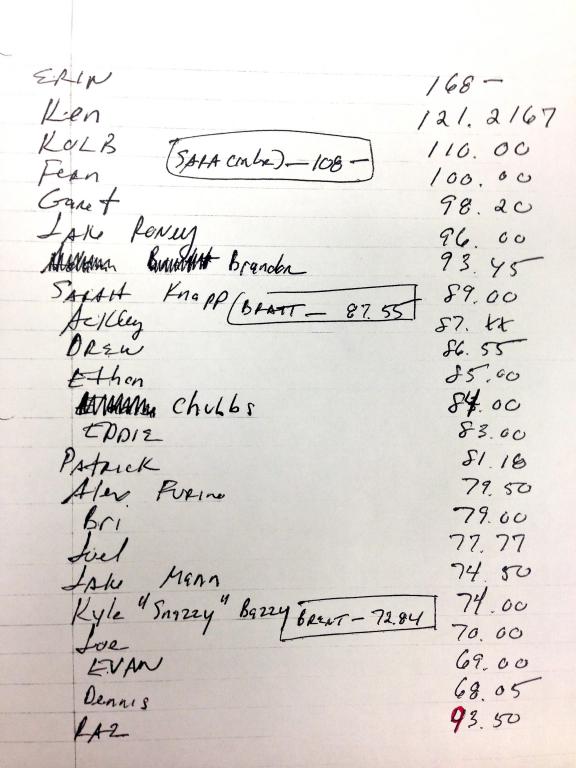 ERIN 168 -
Ken 121.2167
KOLB 110.00
SARA (mbr) - 108 -
Fern 100.00
Garet 98.20
Jake Roney 96.00
Brandon 93.45
SARAH Knapp 89.00
BRATT - 87.55
Ackley 87.xx
DREW 86.55
Ethan 85.00
Chubbs 84.00
EDDIE 83.00
PATRICK 81.18
Alex Furino 79.50
Bri 79.00
Joel 77.77
Jake Mann 74.50
Kyle "Snazzy" Bazzy 74.00
BRENT - 72.84
Joe 70.00
EVAN 69.00
Dennis 68.05
RAZ 93.50